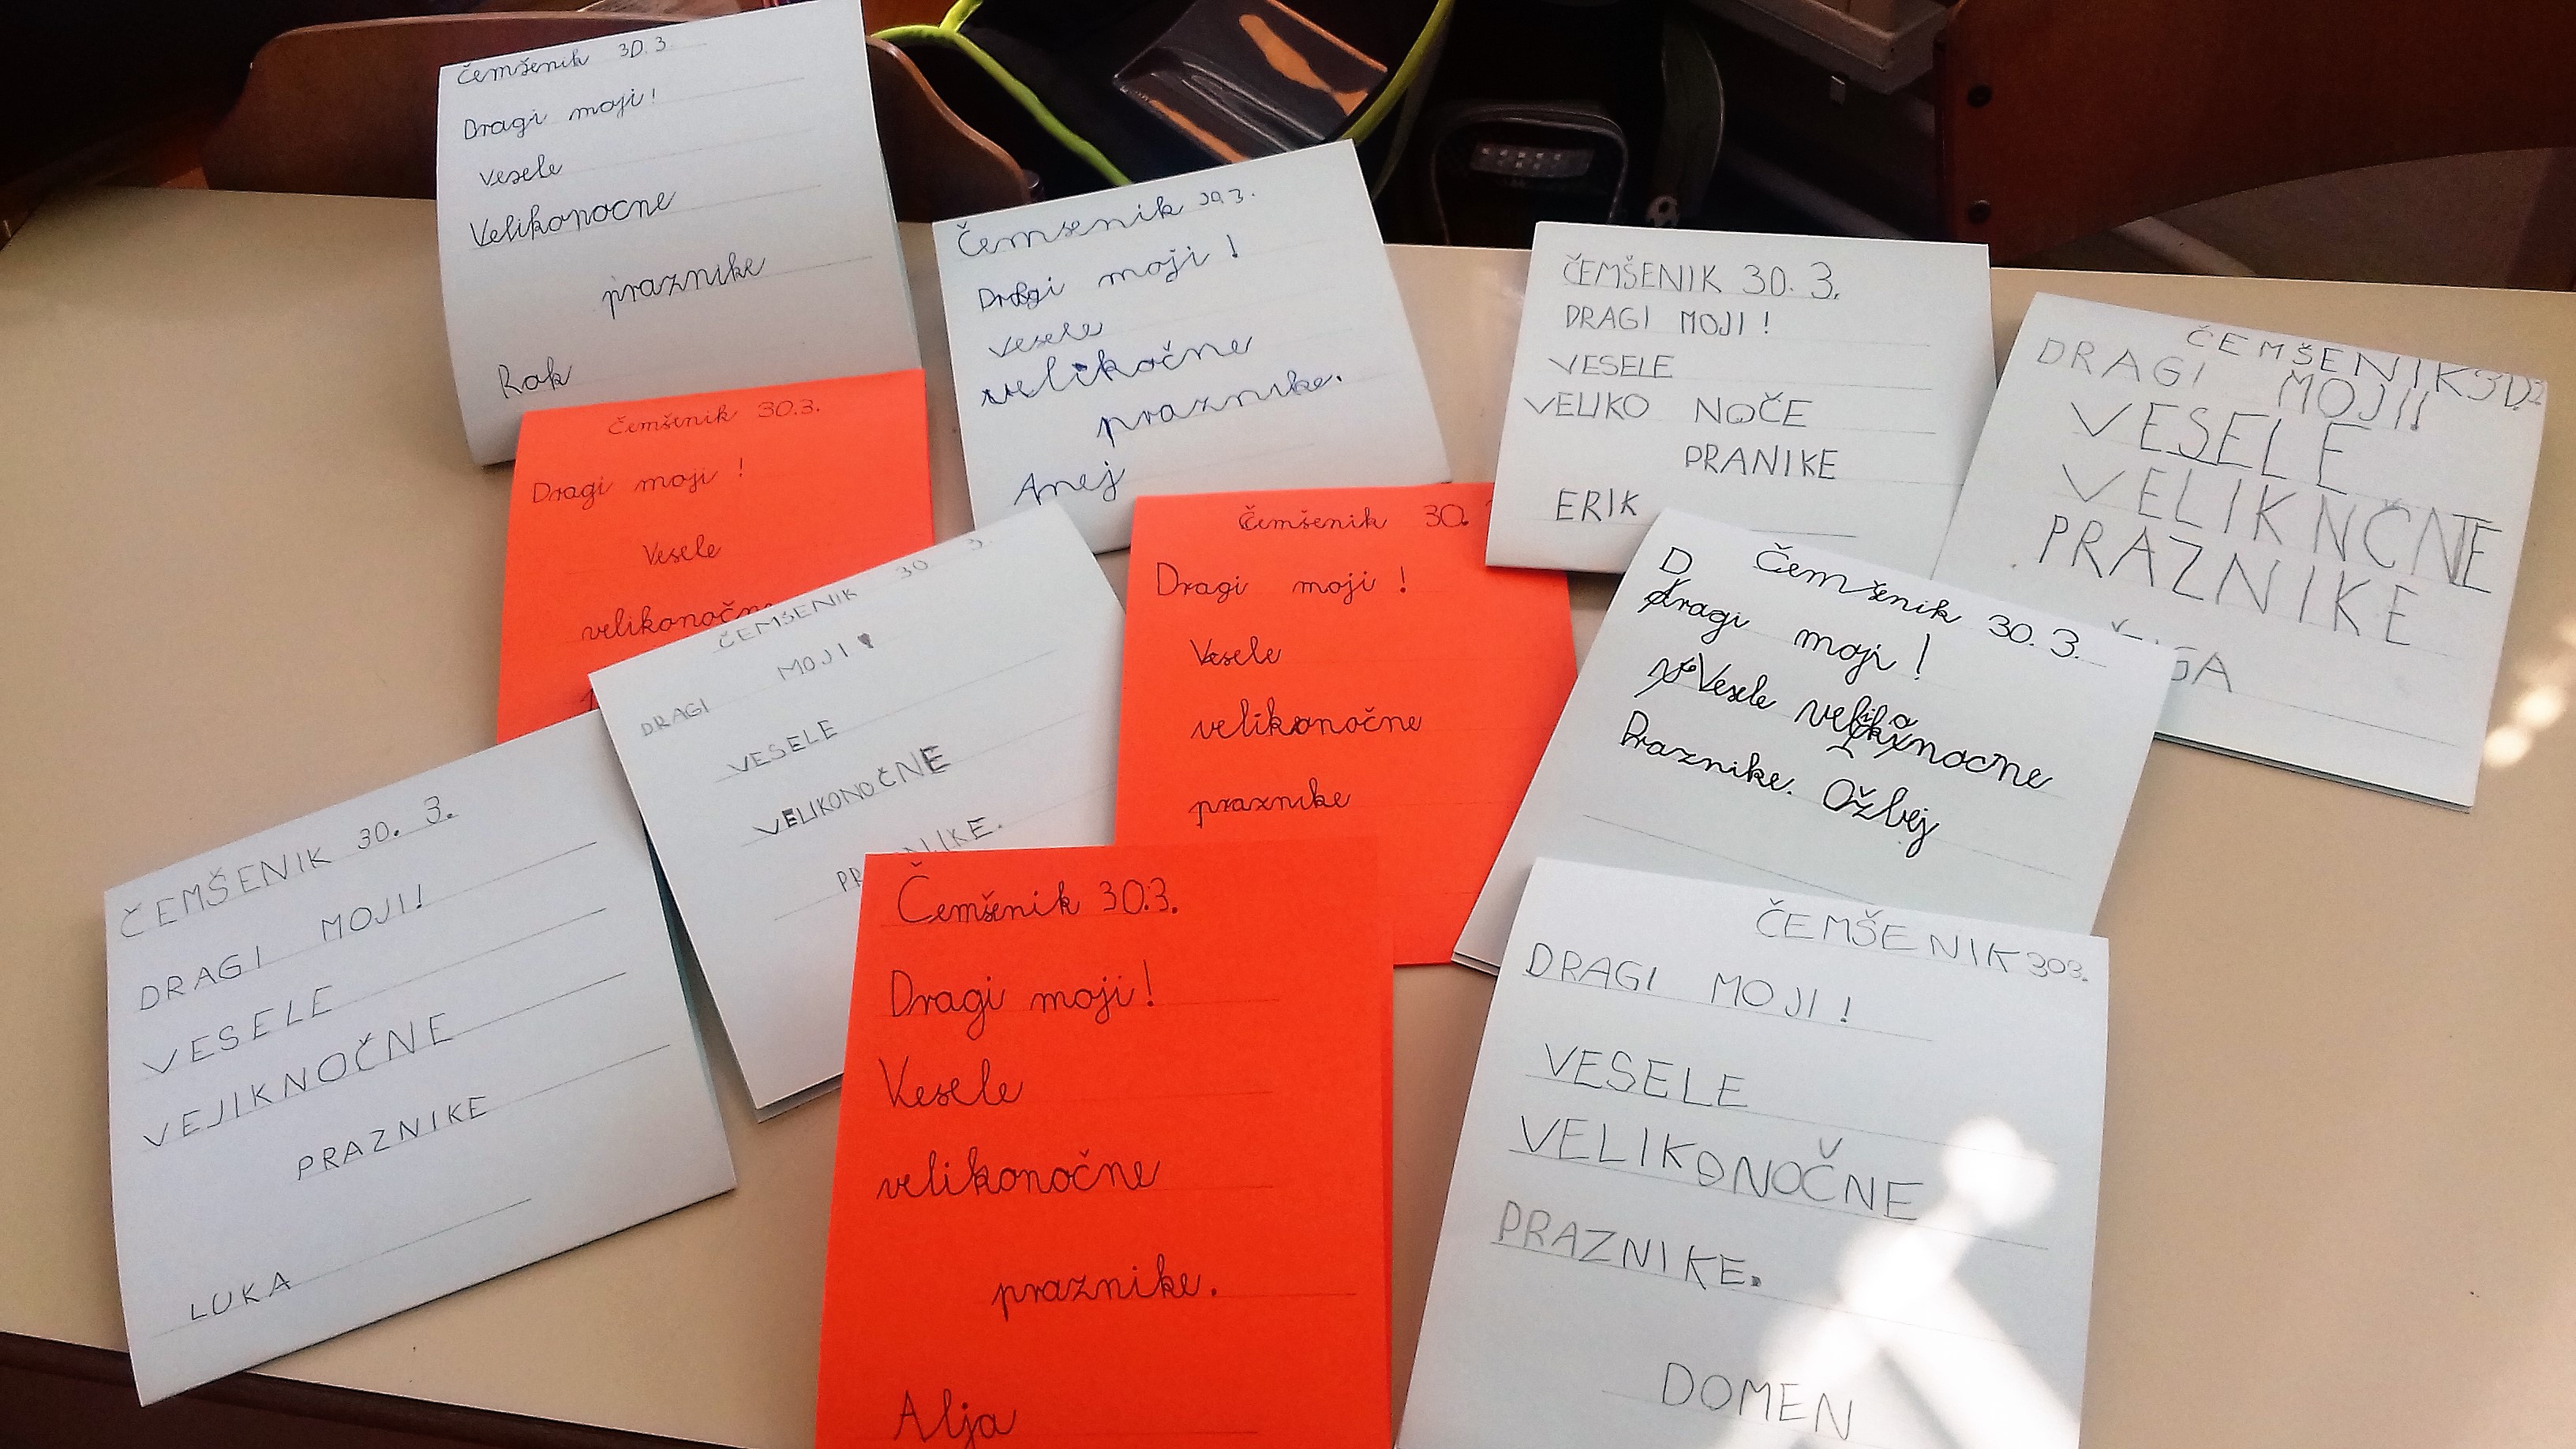 Čemšenik 30.3.
Dragi moji!
vesele
Velikonocne
praznike
Rok
Čemsenik 30.3.
Dragi moji!
vesele
velikočne
praznike.
Anej
ČEMŠENIK 30.3.
DRAGI MOJI!
VESELE
VELIKO NOČE
PRANIKE
ERIK
ČEMŠENIK 30.3
DRAGI MOJI!
VESELE
VELIKNČNE
PRAZNIKE
Čemšenik 30.3.
Dragi moji!
Vesele
velikonočne
ČEMŠENIK 30 3.
DRAGI MOJI!
VESELE
VELIKONOČNE
PRAZNIKE.
Čemšenik 30.
Dragi moji!
Vesele
velikonočne
praznike
Čemšenik 30.3.
Dragi moji!
Vesele velikonocne
Praznike. Ožbej
ČEMŠENIK 30. 3.
DRAGI MOJI!
VESELE
VEJIKNOČNE
PRAZNIKE
LUKA
Čemšenik 30.3.
Dragi moji!
Vesele
velikonočne
praznike.
Alja
ČEMŠENIK 303.
DRAGI MOJI!
VESELE
VELIKONOČNE
PRAZNIKE.
DOMEN